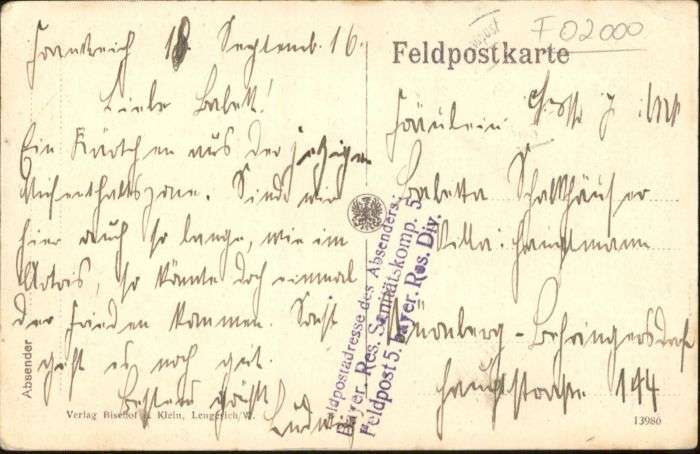 F 02000
Feldpostkarte
Frankreich 18 Septemb. 16.
Liebe Babett!
Ein Kärtchen aus der jetzigen
Aufenthaltszone. Sind wir
hier auch so lange, wie im
Artois, so könnte doch einmal
der Frieden kommen. Sonst
geht es noch gut.
Ludwig
Fräulein
Babetta Schallhäuser
Villa: Hauptmann
Schönberg - Behringersdorf
Hauptstrasse 144
Feldpostadresse des Absenders:
Bayer. Res. Sanitätskomp. 5.
Feldpost 5. bayer. Res. Div.
Absender
Verlag Bischof & Klein, Lengerich/W.
13986